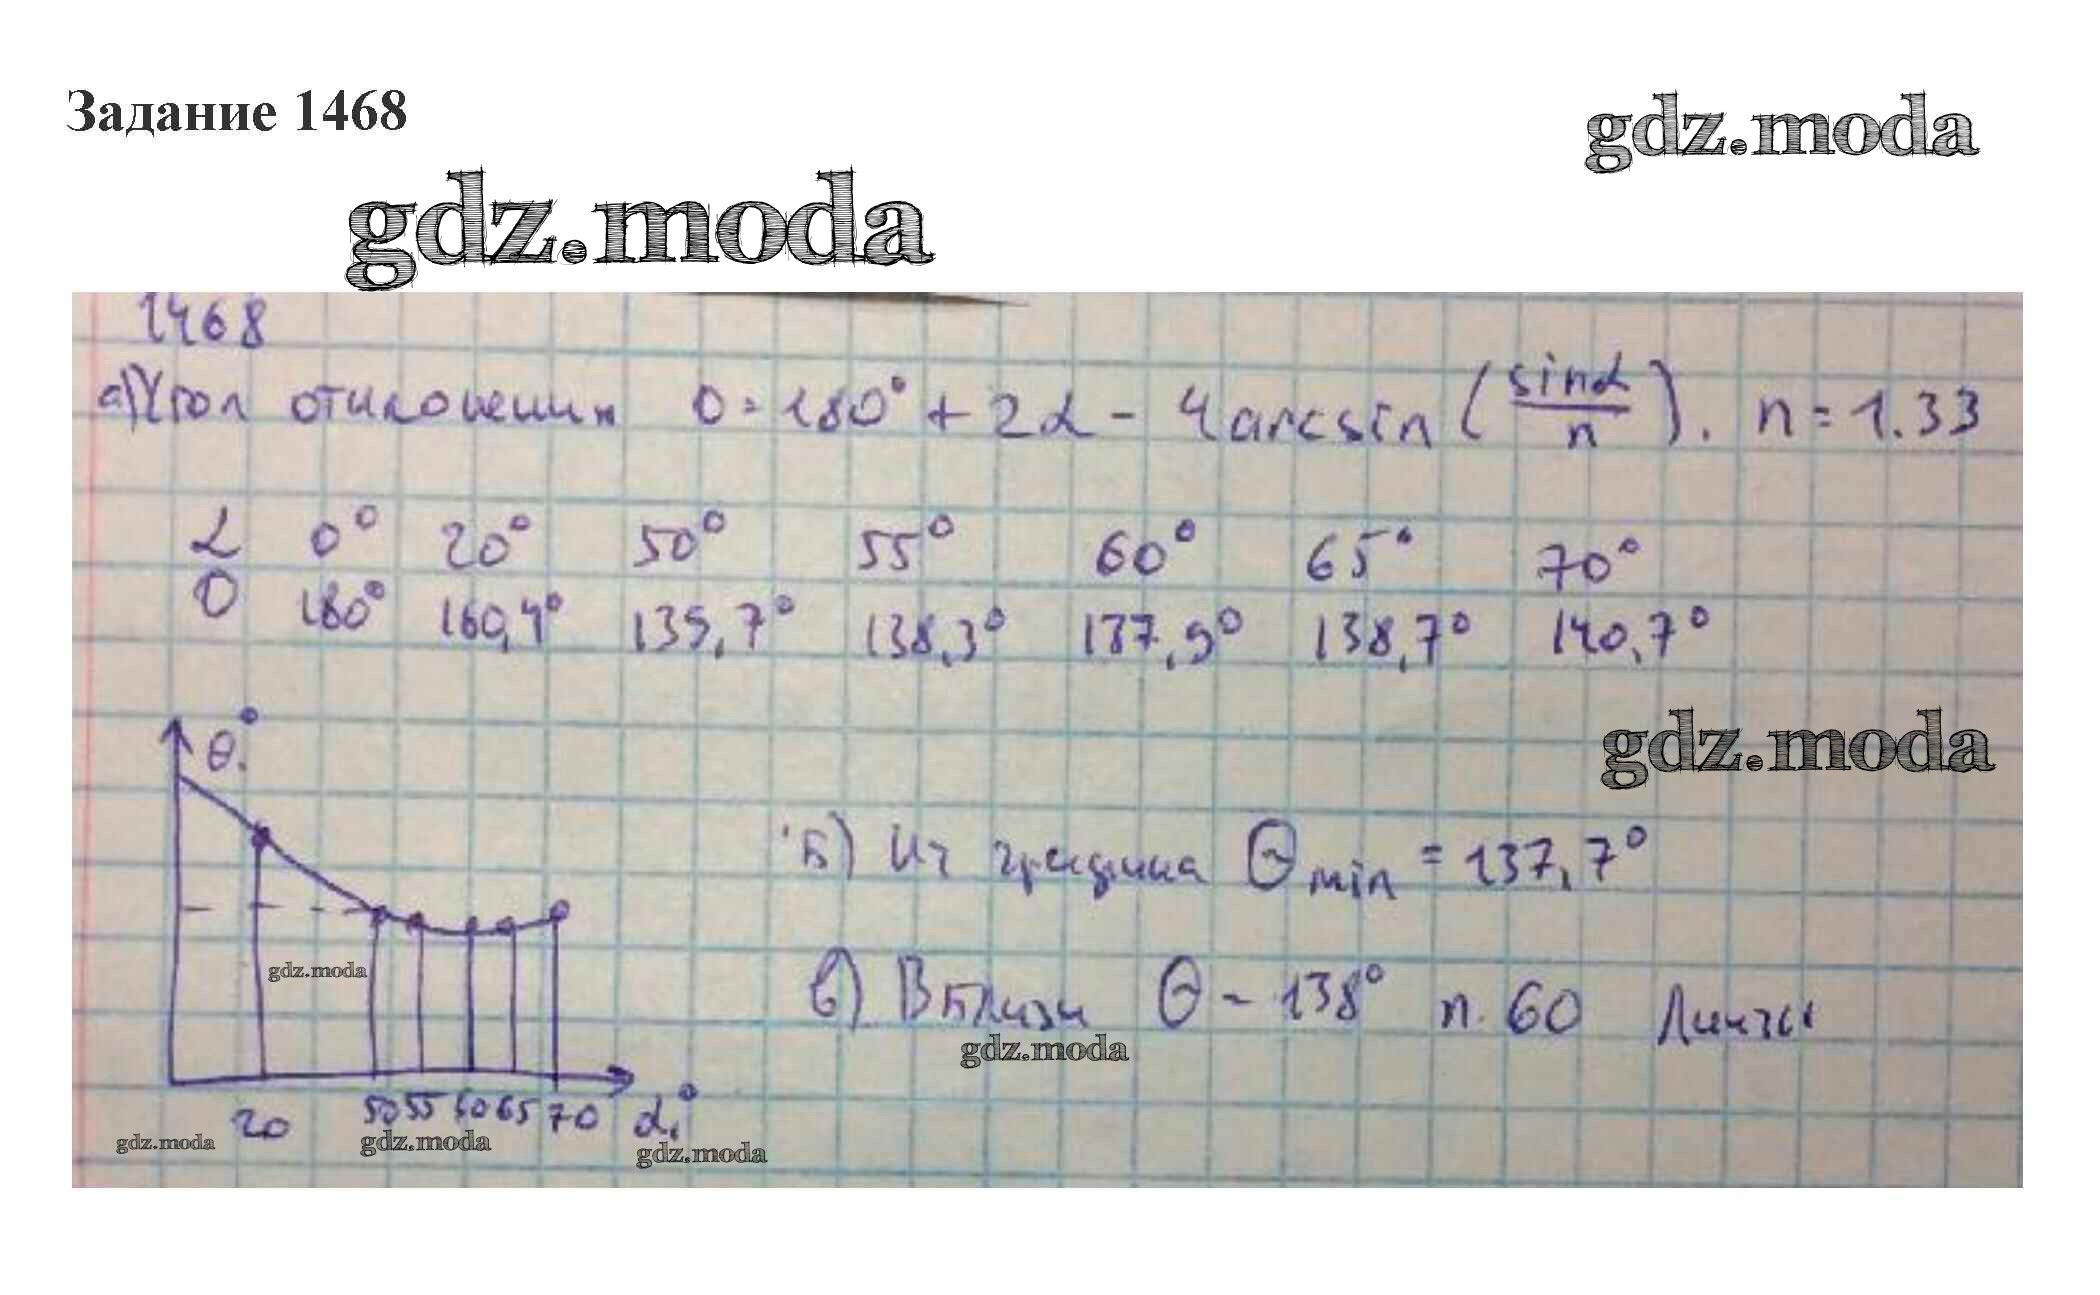 Задание 1468
gdz.moda
gdz.moda
1468
а) Угол отклонения θ = 180° + 2α - 4 arcsin (sinα / n). n = 1.33
α 0° 20° 50° 55° 60° 65° 70°
θ 180° 160,4° 139,7° 138,3° 137,9° 138,7° 140,7°
gdz.moda
θ,°
Б) Из графика θmin = 137,7°
в) Вблизи θ ~ 138°
gdz.moda
gdz.moda
20 50 55 60 65 70 α,°
gdz.moda
gdz.moda
gdz.moda